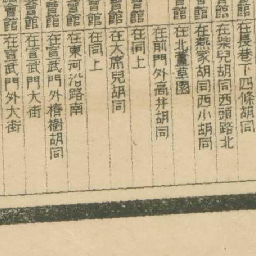 會館 在長巷下四條胡同
會館 在梁兒胡同西頭路北
會館 在熊家胡同西小胡同
會館 在北蘆草園
會館 在前門外高井胡同
會館 在同上
會館 在同上
會館 在大席兒胡同
會館 在東河沿路南
會館 在宣武門外椿樹胡同
會館 在宣武門大街
會館 在宣武門外大街